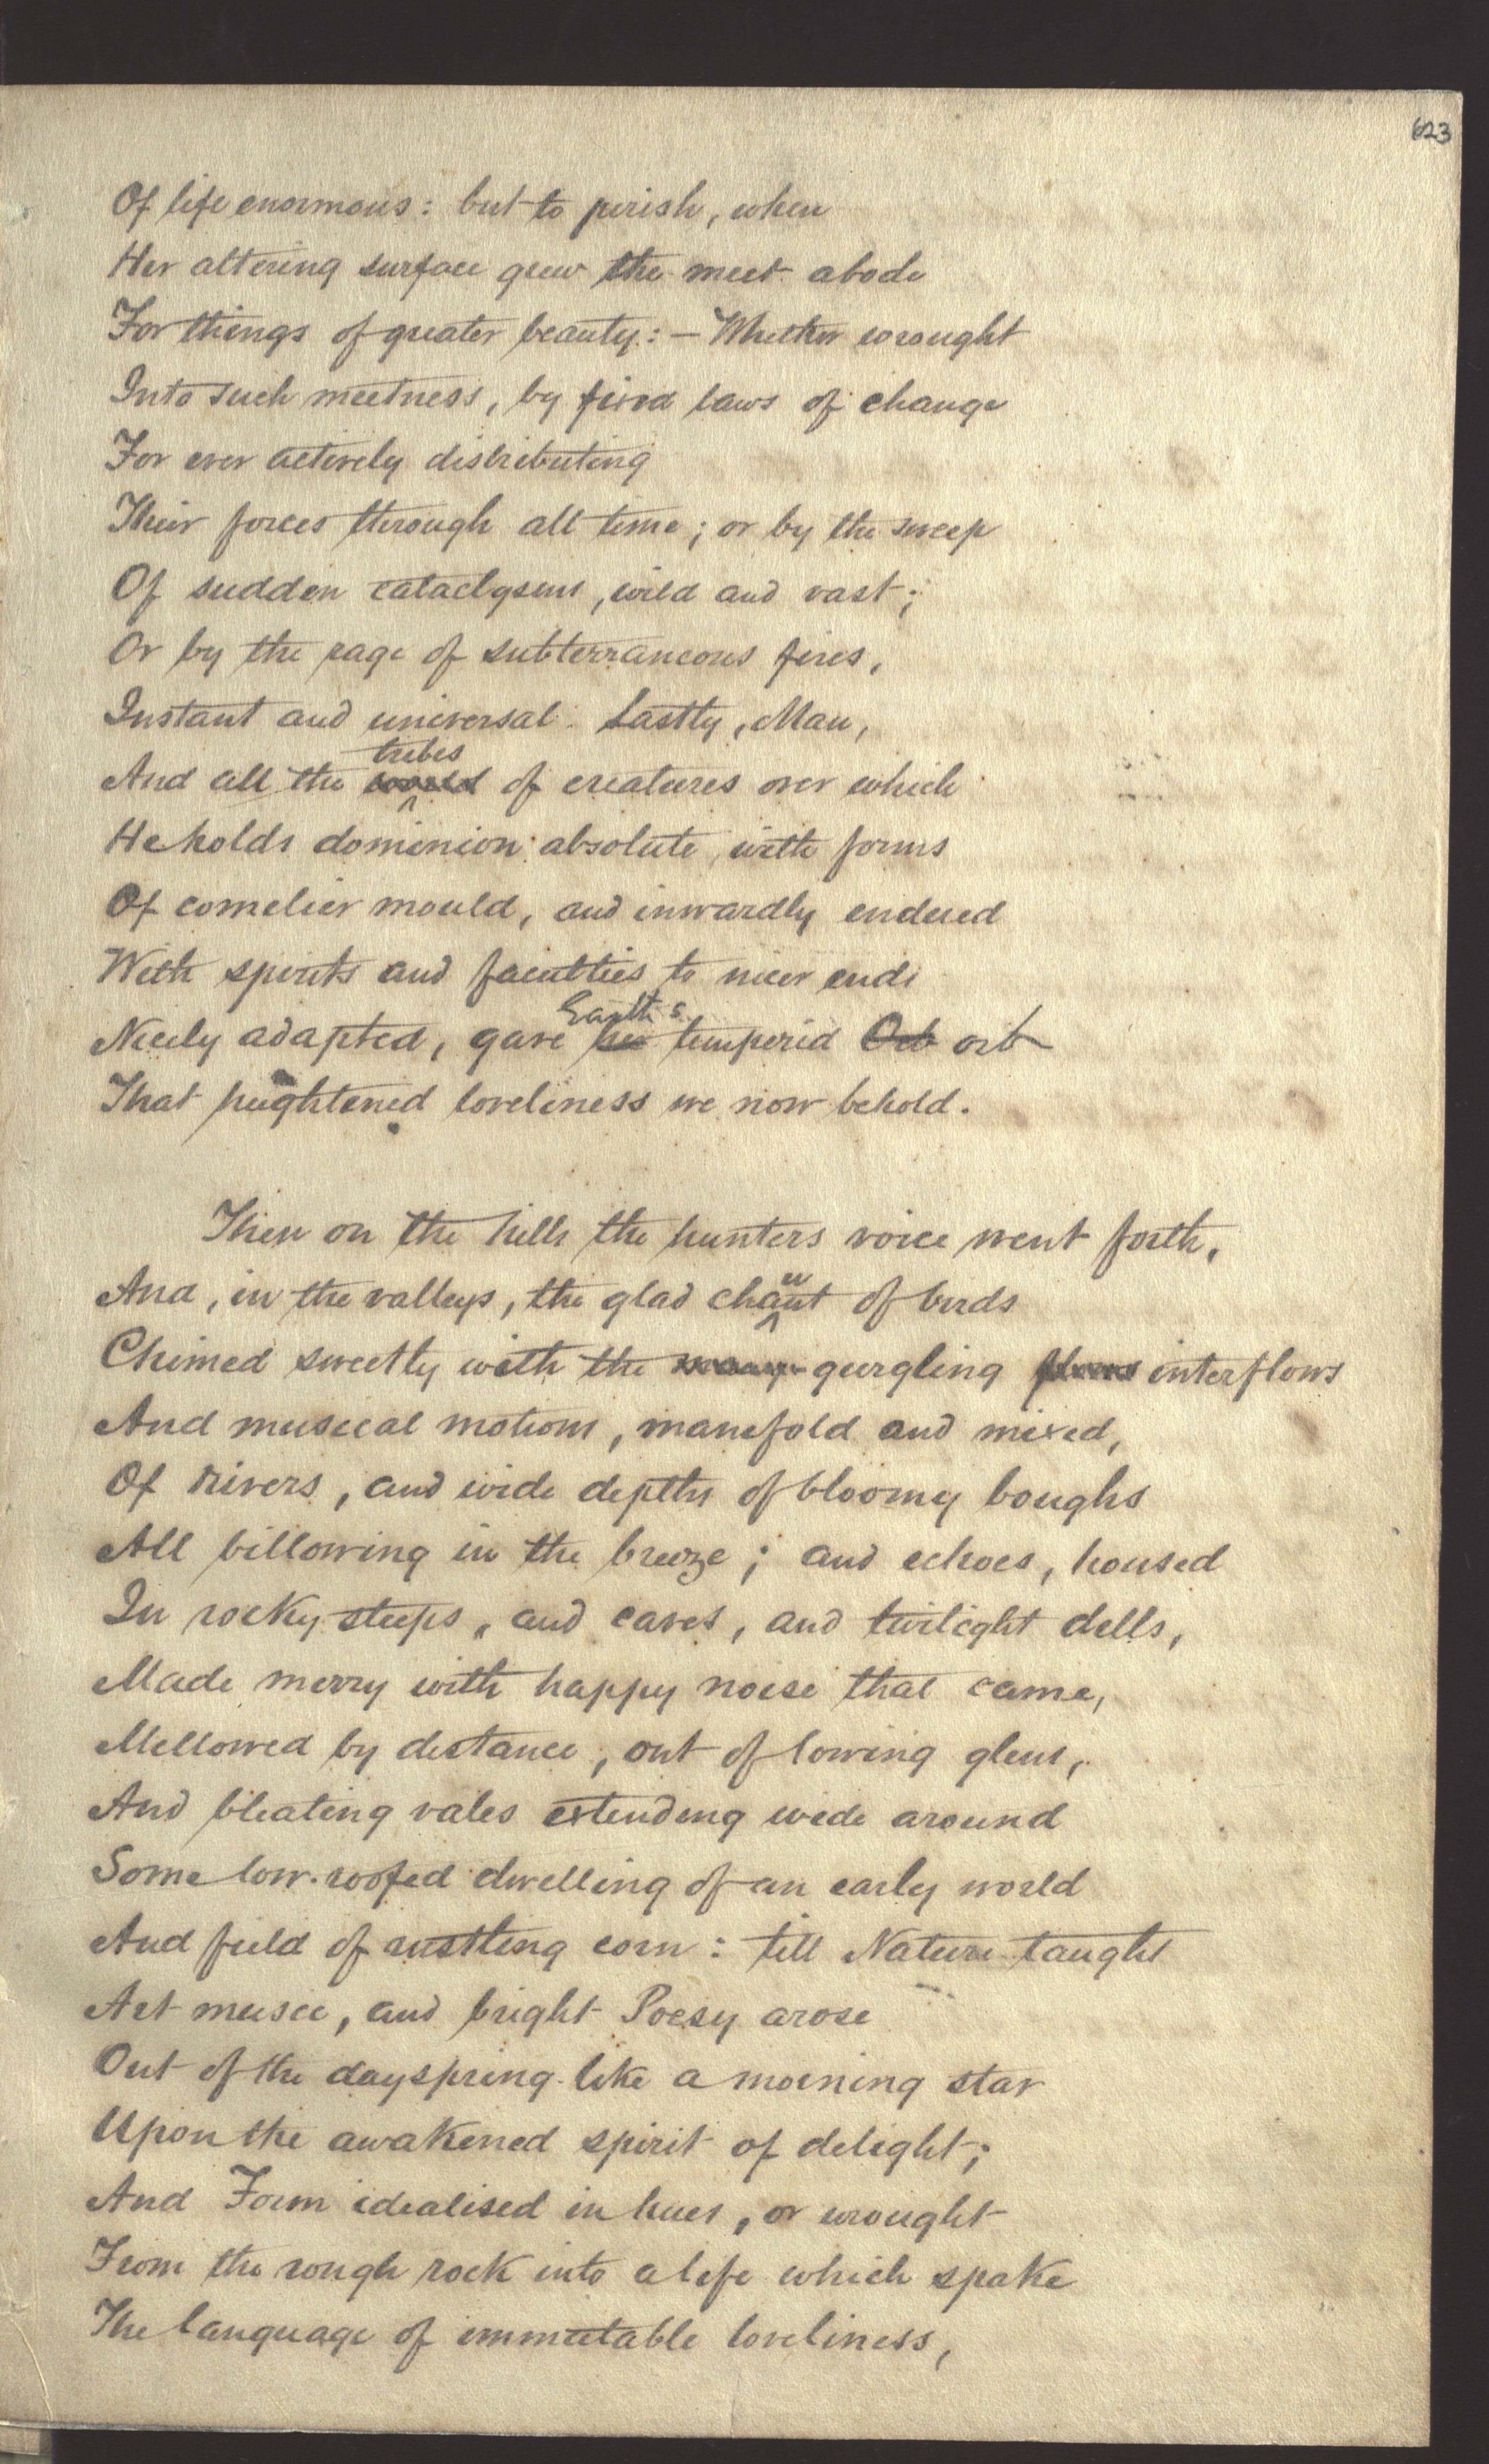 623
Of life enormous: but to perish, when
Her altering surface grew the meet abode
For things of greater beauty:— Whether wrought
Into such meetness, by fixed laws of change
For ever actively distributing
Their forces through all time; or by the sweep
Of sudden cataclysms, wild and vast;
Or by the rage of subterraneous fires,
Instant and universal. Lastly, Man,
tribes
And all the world of creatures over which
He holds dominion absolute, with forms
Of comelier mould, and inwardly endued
With spirits and faculties to nicer ends
Earth's
Nicely adapted, gave her temperid Orb orb
That heightened loveliness we now behold.
Then on the hills the hunters voice went forth,
u
And, in the valleys, the glad chant of birds
Chimed sweetly with the many gurgling flows interflows
And musical motions, manifold and mixed,
Of rivers, and wide depths of bloomy boughs
All billowing in the breeze; and echoes, housed
In rocky steeps, and caves, and twilight dells,
Made merry with happy noise that came,
Mellowed by distance, out of lowing glens,
And bleating vales extending wide around
Some low-roofed dwelling of an early world
And field of rustling corn: till Nature taught
Art music, and bright Poesy arose
Out of the dayspring like a morning star
Upon the awakened spirit of delight;
And Form idealised in hues, or wrought
From the rough rock into a life which spake
The language of immutable loveliness,